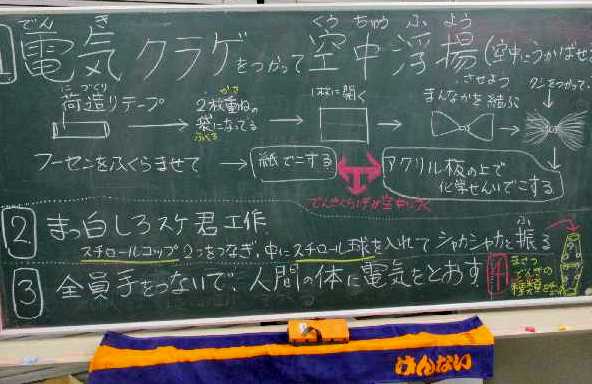 でんき くうちゅうふよう
1 電気クラゲをつかって空中浮揚(空中にうかばせる
にづくり
荷造りテープ → 2枚重ねの袋になってる → 1枚に開く → まんなかを結ぶ →
かさ
ふくろ
させよう
クシをつかって、
フーセンをふくらませて → 紙でこする
アクリル板の上で
化学せんいでこする
でんきくらげが空中に
2 まっ白しろスケ君工作
スチロールコップ2つをつなぎ、中にスチロール球を入れてシャカシャカと振る
ふ
3 全員手をつないで、人間の体に電気をとおす
4 まさつ
でんきの
種類
けんない